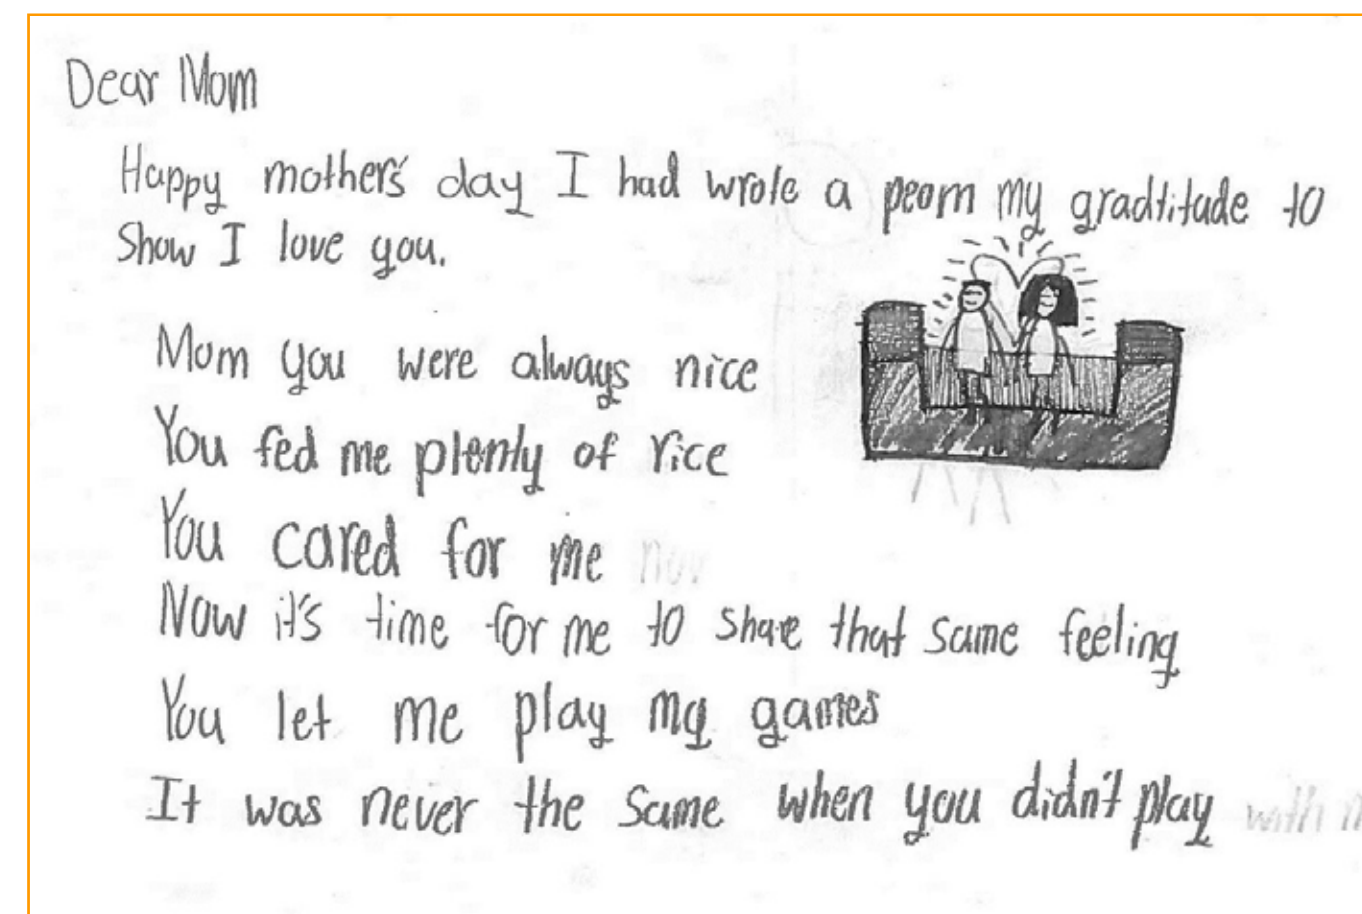 Dear Mom
Happy mother's day I had wrote a peom my gradtitude to
Show I love you.
Mom you were always nice
You fed me plenty of rice
You cared for me nov
Now it's time for me to share that same feeling
You let me play my games
It was never the same when you didn't play with